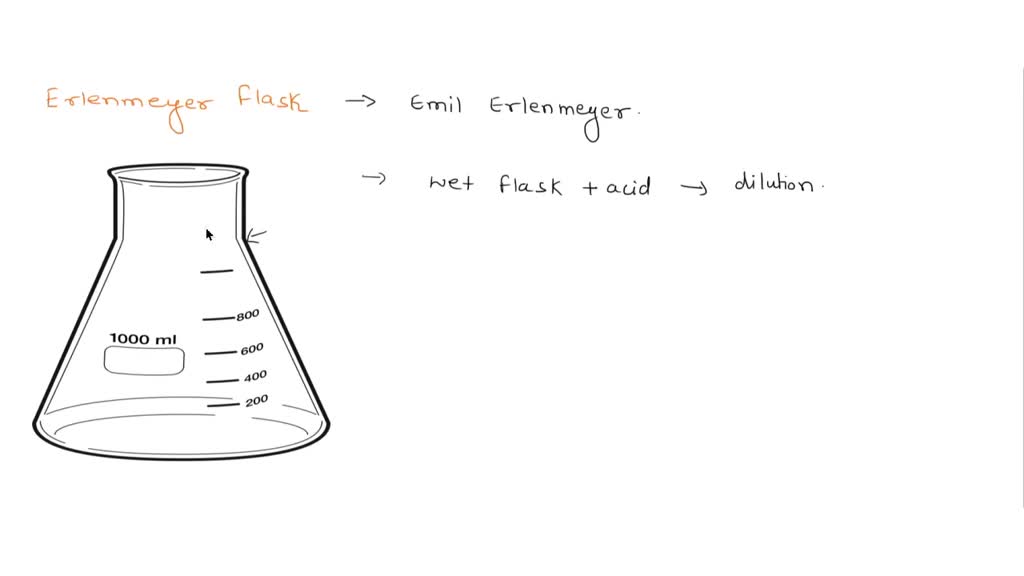 Erlenmeyer flask → Emil Erlenmeyer.
→ wet flask + acid → dilution.
800
1000 ml
600
400
200